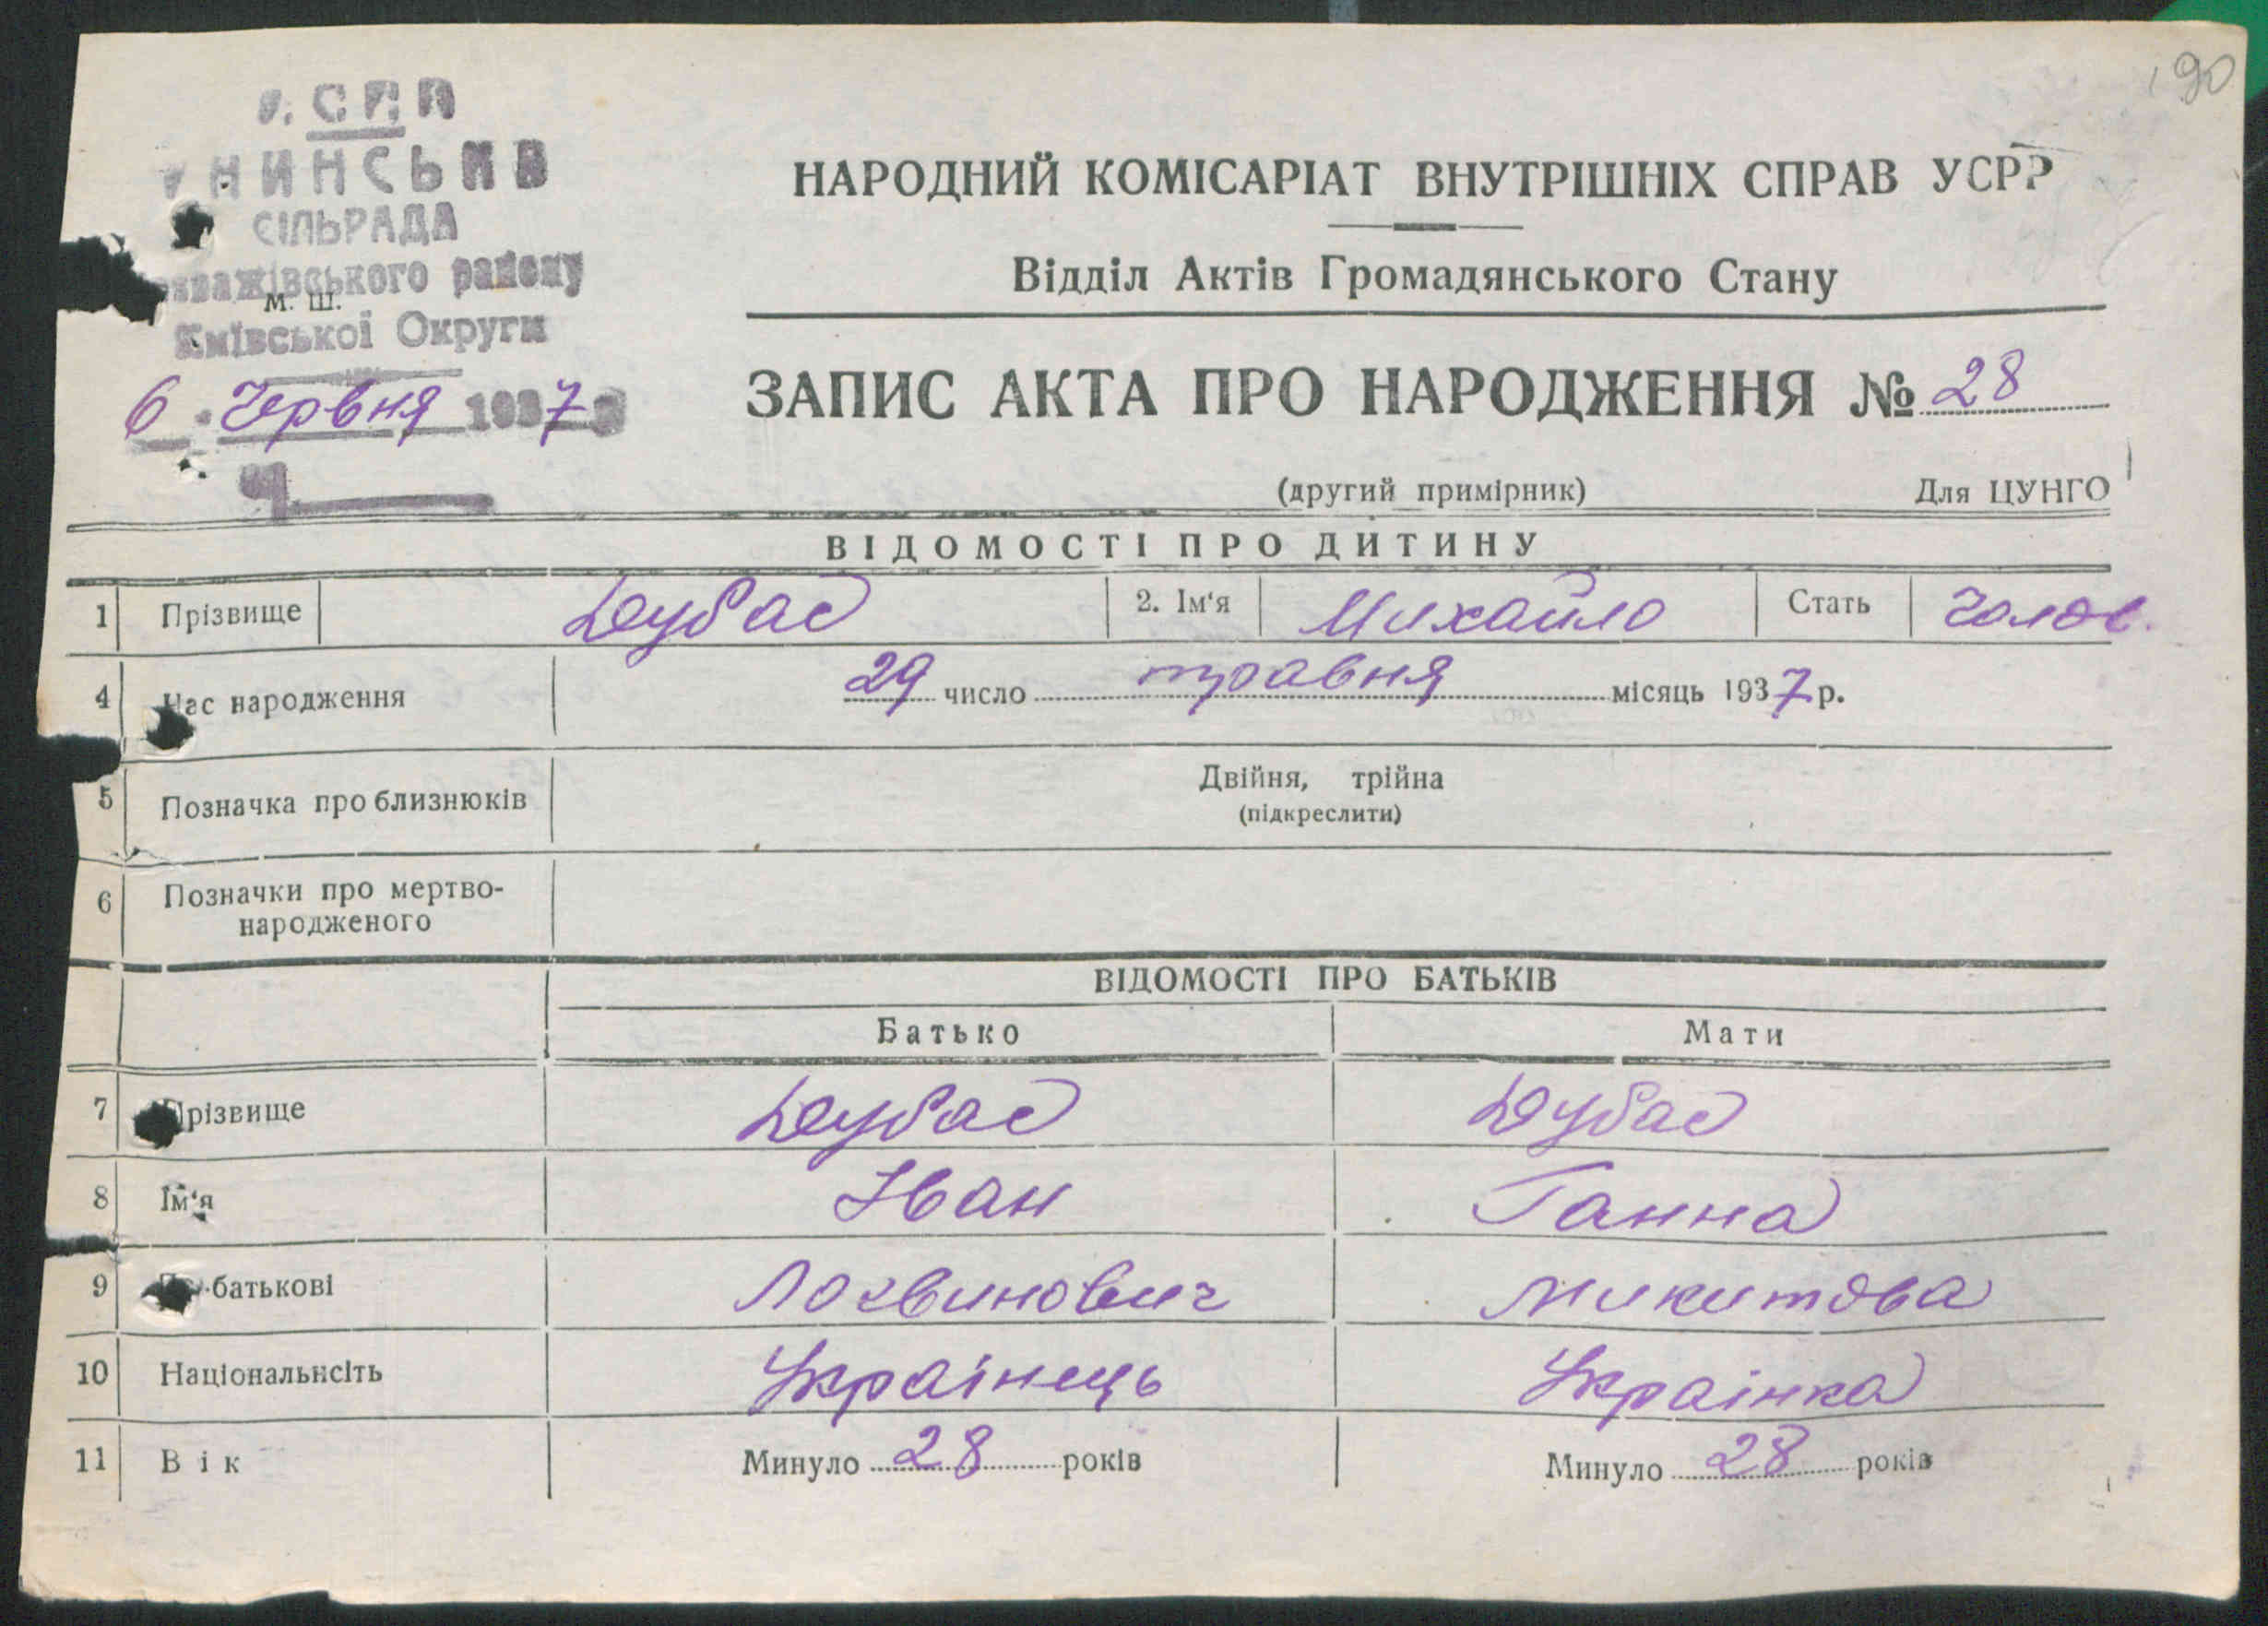 190
У. С. Р. Р.
СІЛЬРАДА
району
м. ш.
Київської Округи
6 Червня 1937
Ч.
НАРОДНИЙ КОМІСАРІАТ ВНУТРІШНІХ СПРАВ УСРР
Відділ Актів Громадянського Стану
ЗАПИС АКТА ПРО НАРОДЖЕННЯ № 28
(другий примірник) Для ЦУНГО
ВІДОМОСТІ ПРО ДИТИНУ
1 Прізвище Дубас 2. Ім'я Михайло Стать Чолов.
4 Час народження 29 число травня місяць 1937 р.
5 Позначка про близнюків Двійня, трійна
(підкреслити)
6 Позначки про мертво-
народженого
ВІДОМОСТІ ПРО БАТЬКІВ
Батько Мати
7 Прізвище Дубас Дубас
8 Ім'я Іван Ганна
9 По-батькові Логвинович Микитова
10 Національнсіть Українець Українка
11 Вік Минуло 28 років Минуло 28 років